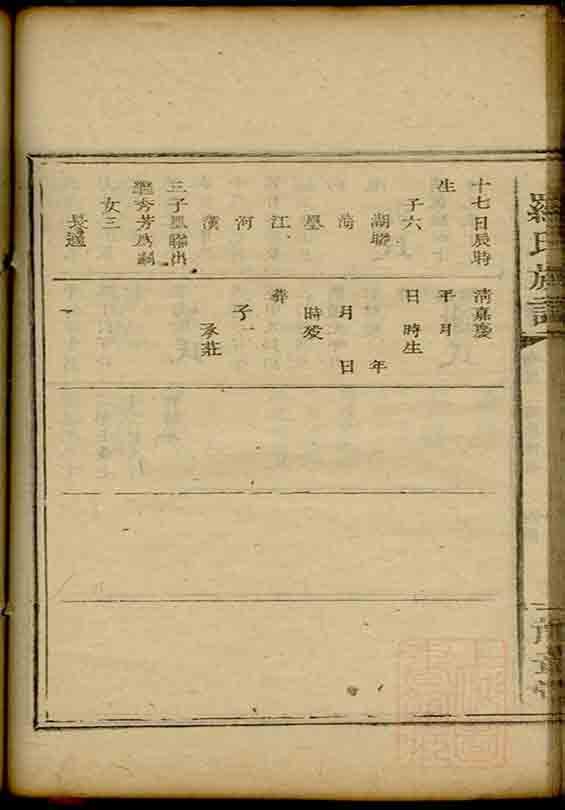 羅氏族譜
十七日辰時
生
子六
湖聯
漪
墨
江
河
漢
三子墨聯出
繼秀芳爲嗣
女三
長適
清嘉慶
年 月
日 時生
年
月 日
時歿
葬
子一
承莊